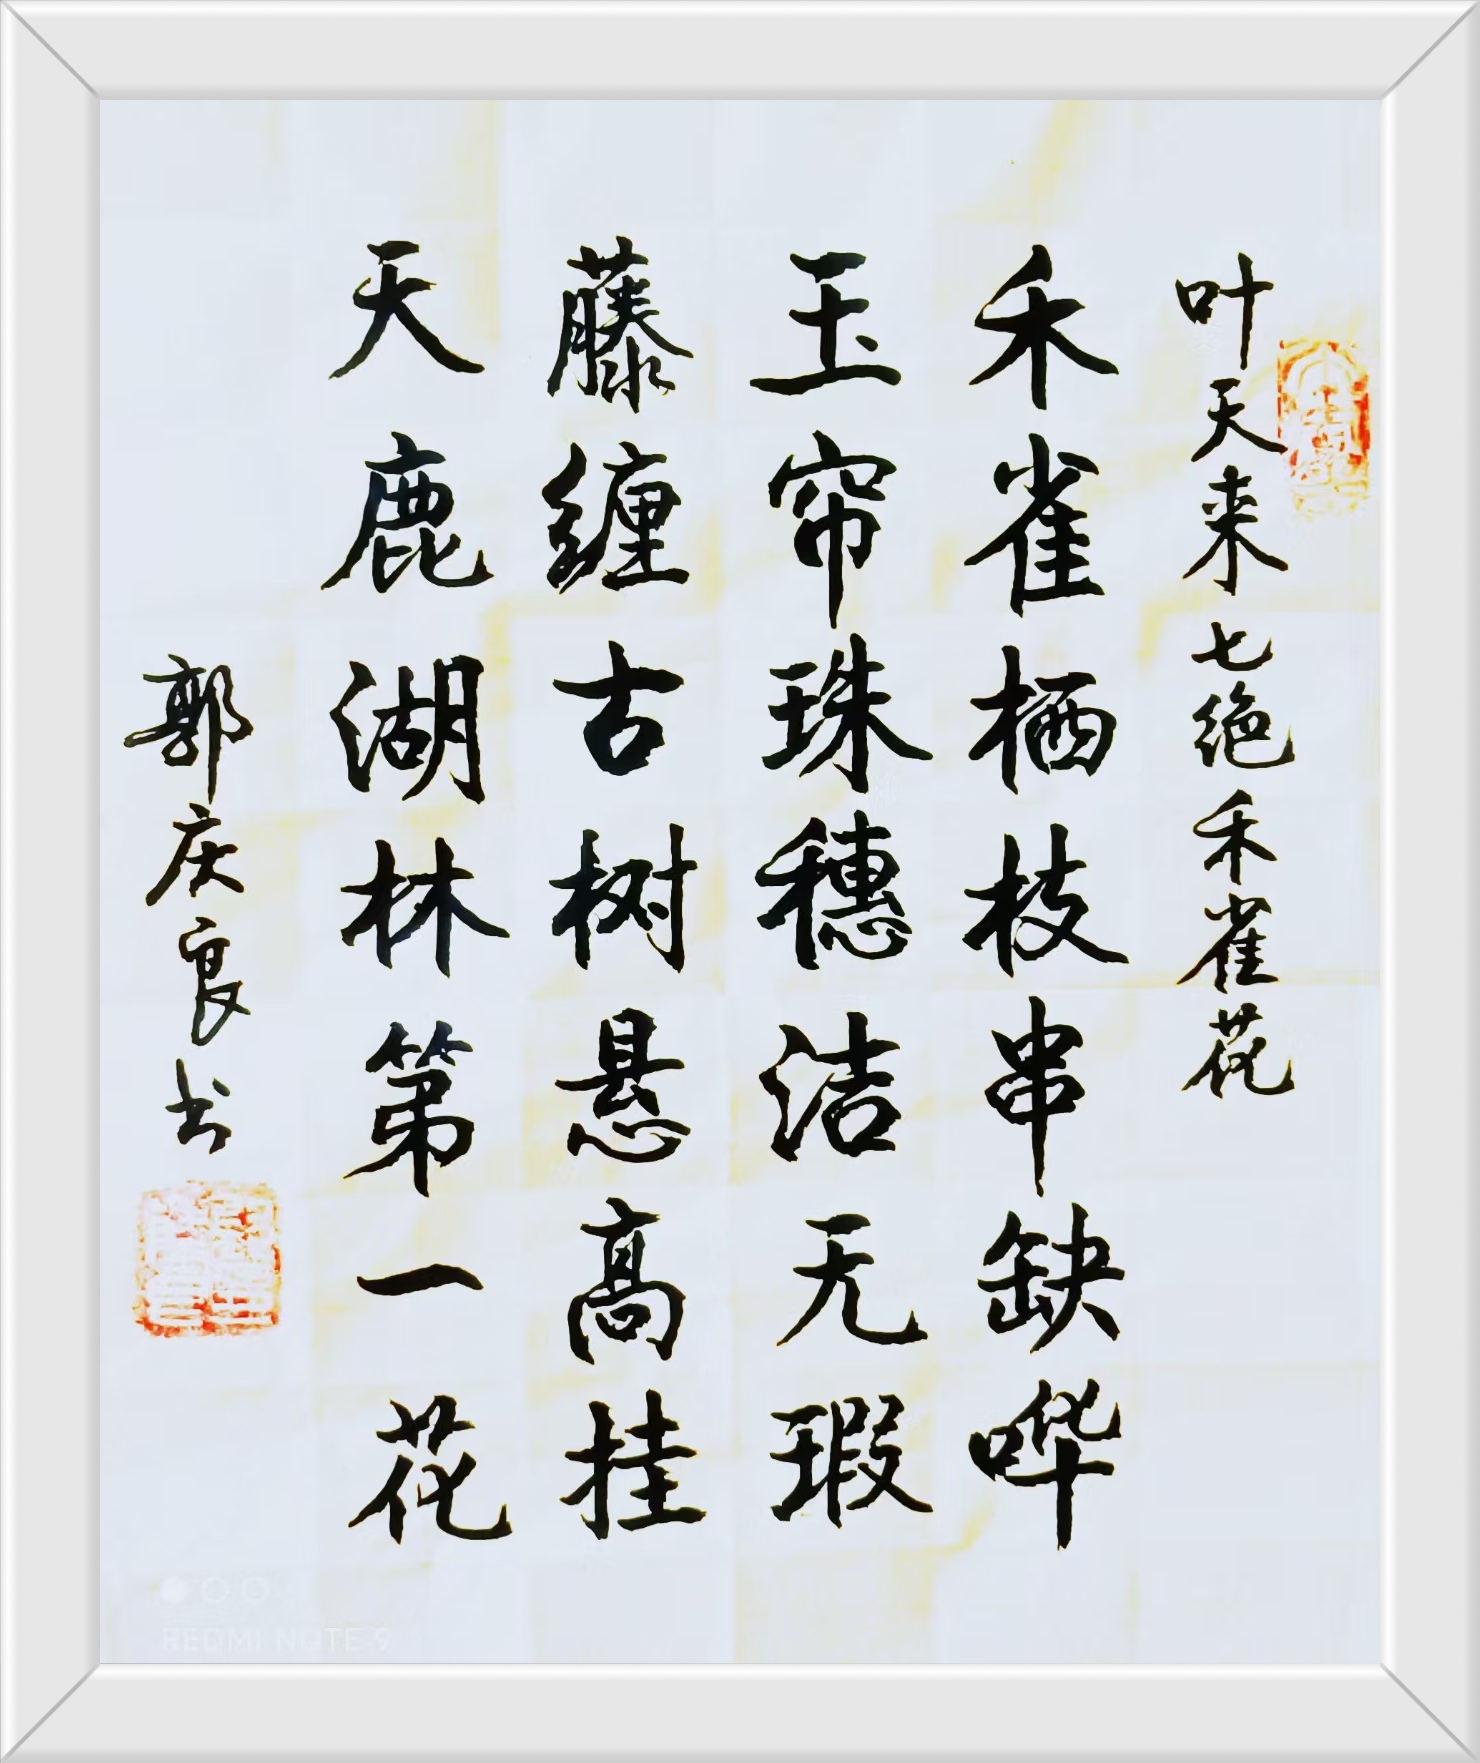 叶天来七绝禾雀花
禾雀栖枝串缺哗
玉帘珠穗洁无瑕
藤缠古树悬高挂
天鹿湖林第一花
郭庆良书
REDMI NOTE 9